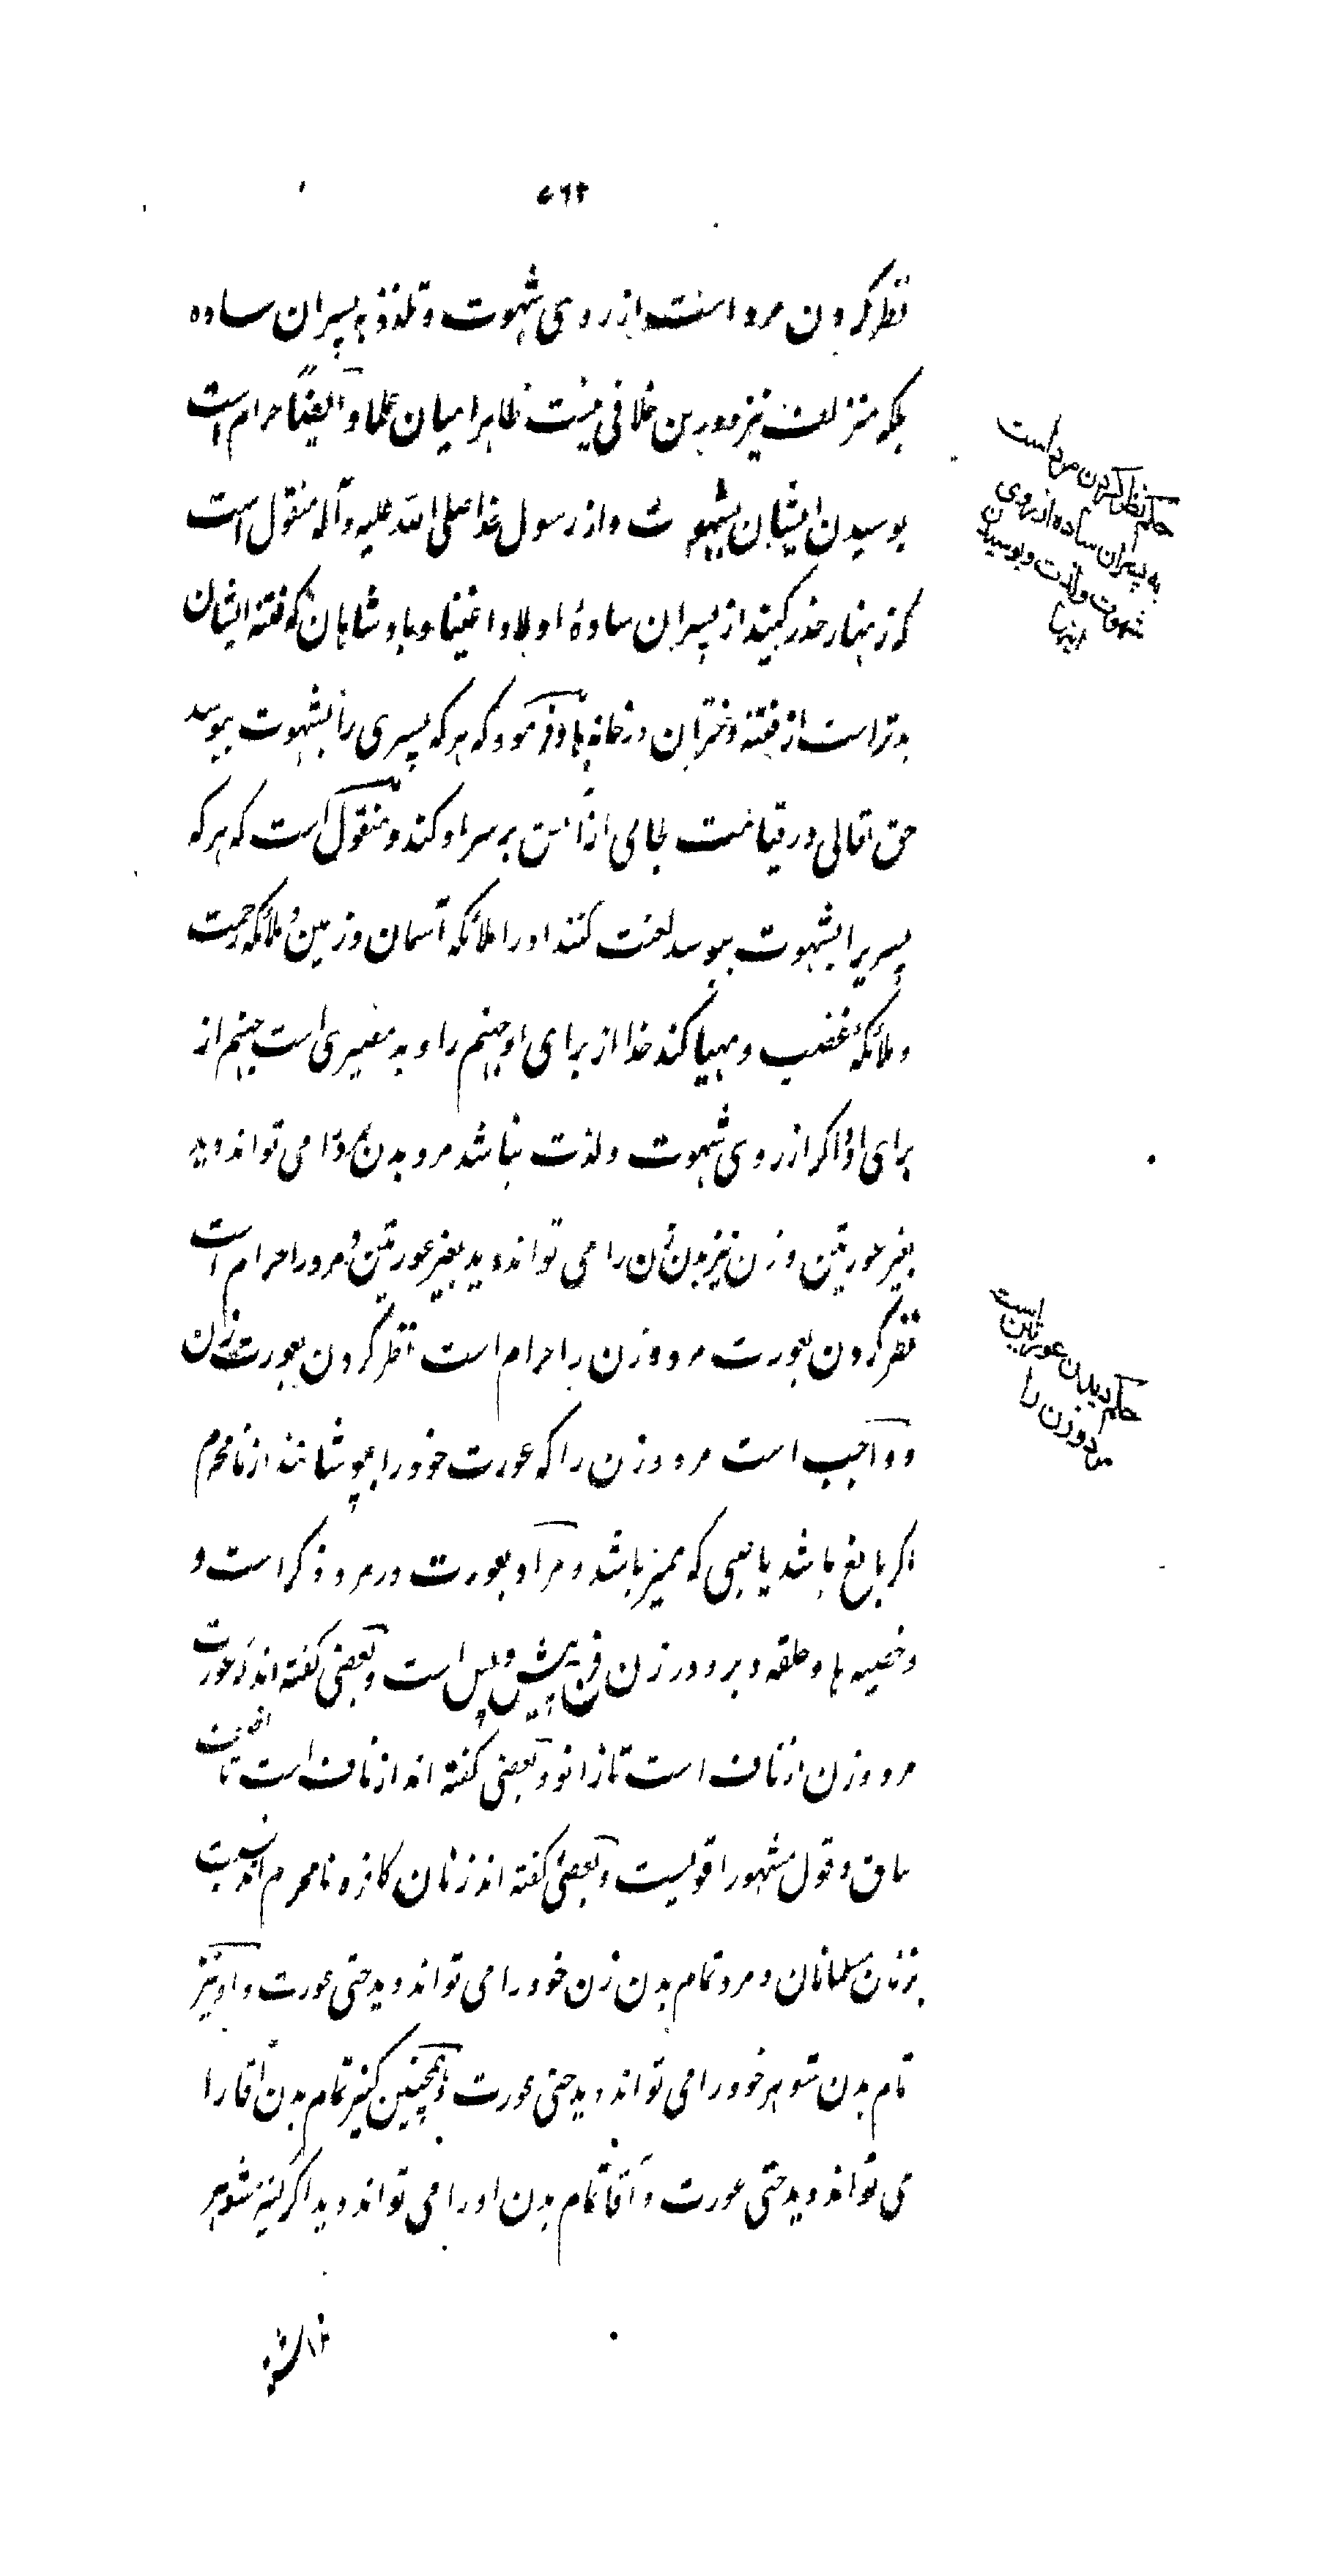 ۵۶۲
نظر کردن مرد است از روی شهوت و تلذذ به پسران ساده
بلکه نیز و درین خلافی نیست ظاهرا میان علما و ایضا حرام است
بوسیدن ایشان بشهوت و از رسول خدا صلی الله علیه و آله منقول است
که زنهار حذر کنید از پسران سادهٔ اولاد اغنیا و پادشاهان که فتنه ایشان
بدتر است از فتنه دختران در خانه‌ها و فرمود که هر که پسری را بشهوت ببوسد
حق تعالی در قیامت لجامی از آتش بر سر او کند و منقول است که هر که
پسریرا بشهوت ببوسد لعنت کنند او را ملائکه آسمان و زمین و ملائکه رحمت
و ملائکهٔ غضب و مهیا کند خدا از برای او جهنم را و بد مصیری است جهنم از
برای او و اگر از روی شهوت و لذت نباشد مرد بدن مرد را می تواند دید
بغیر عورتین و زن نیز بدن زن را می تواند دید بغیر عورتین و مرد را حرام است
نظر کردن بعورت مرد و زن را حرام است نظر کردن بعورت زن
و واجب است مرد و زن را که عورت خود را بپوشانند از نامحرم
اگر بالغ باشد یا صبی که ممیز باشد و مراد بعورت در مرد ذکر است و
و خصیه ها و حلقه دبر و در زن فرج پیش و پس است و بعضی گفته اند که عورت
مرد و زن از ناف است تا زانو و بعضی گفته اند از ناف است تا نصف
ساق و قول مشهور اقویست و بعضی گفته اند زنان کافره نامحرم اند نسبت
بزنان مسلمانان و مرد تمام بدن زن خود را می تواند دید حتی عورت و او نیز
تمام بدن شوهر خود را می تواند دید حتی عورت و همچنین کنیز تمام بدن آقا را
می تواند دید حتی عورت و آقا تمام بدن او را می تواند دید اگر کنیز شوهر
حکم نظر کردن مرد است
به پسران ساده از روی
شهوت و لذت و بوسیدن
اینها
حکم دیدن عورتین است
مرد و زن را